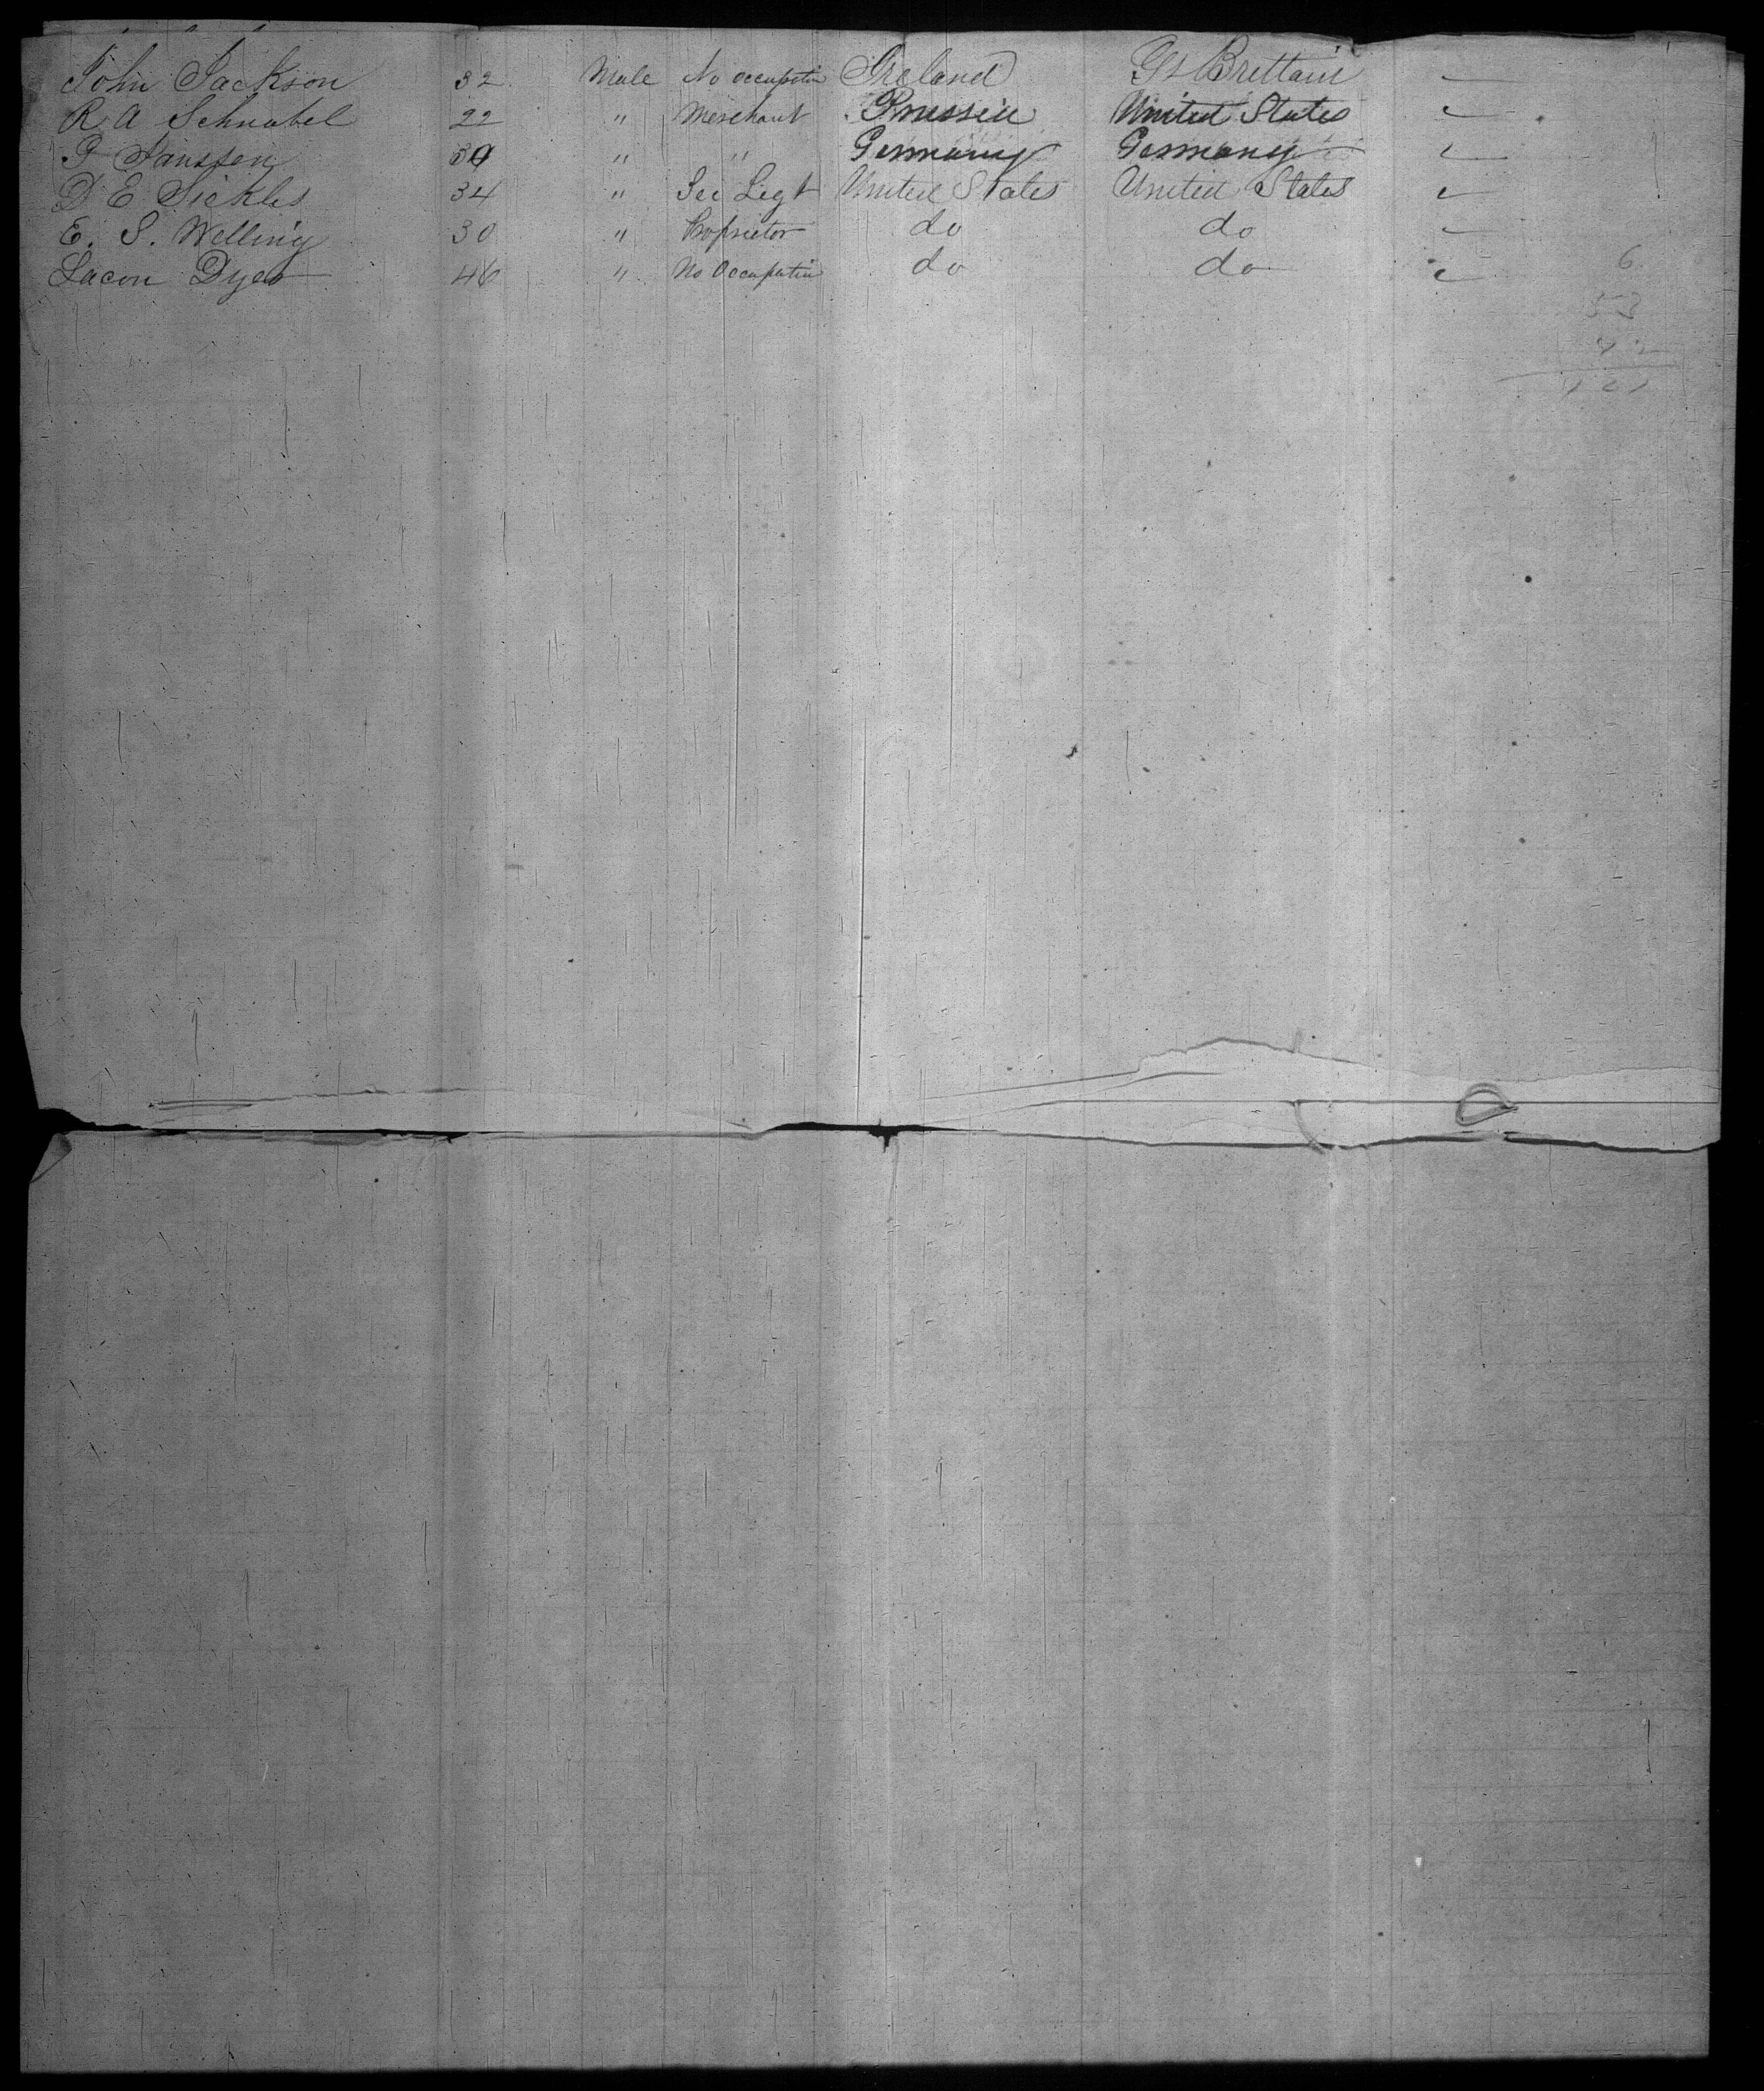 John Jackson 32 Male No Occupatin Ireland Gt Brittain
R A Schnabel 22 " Merchant Prussia United States
P Janssen " " Germany Germany
D E Sickles 34 " Sec Legt United States United States
E. S. Welling 30 " Proprietor do do
Lacon Dyer 46 " No Occupatin do do
6
53